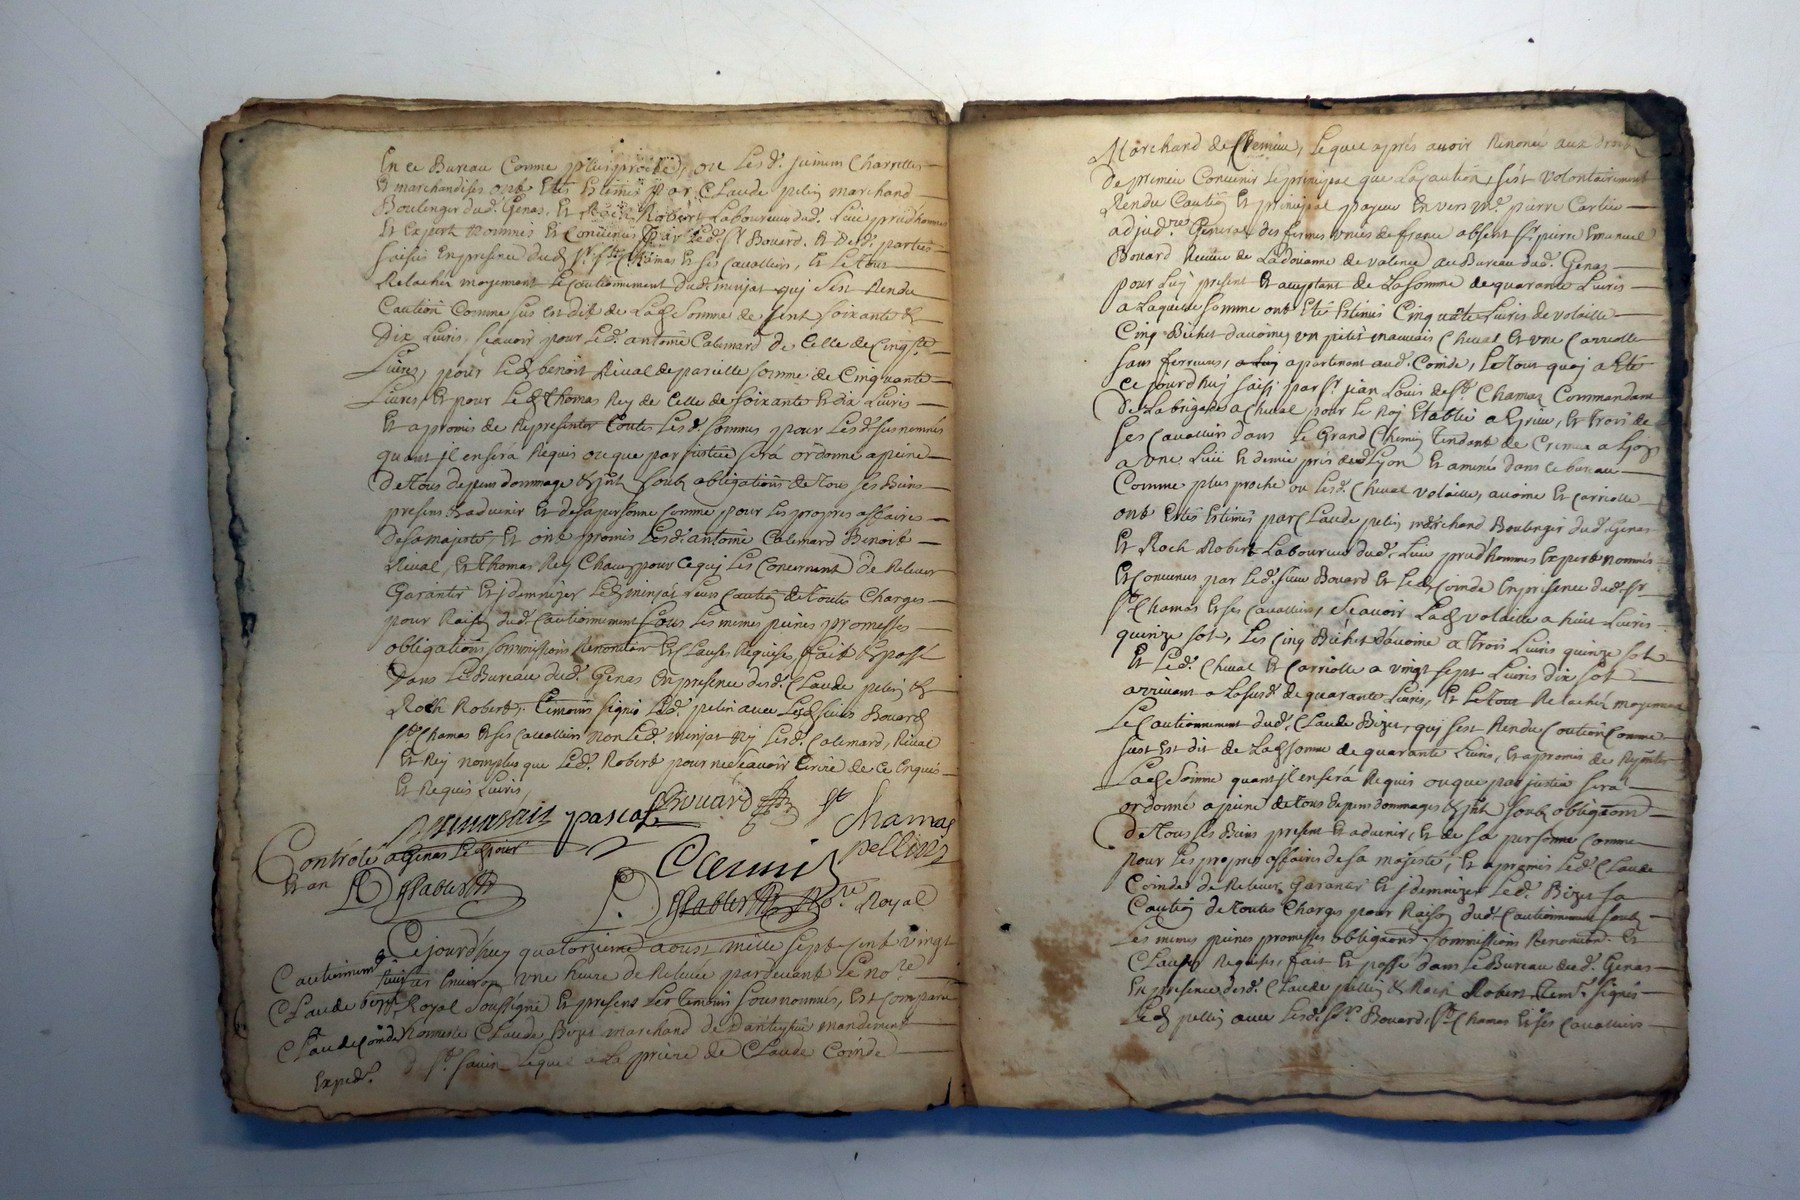 En ce Bureau Comme plus proche, ou Lesd. jumens Charrettes
Et marchandises ont Etés Estimés par Claude pelin marchand
Boulenger dud. Genas, Et Roch Robert Laboureur dud. Lieu prudhommes
Et Expert Nommés Et Convenus par Led. Sr Bouard, Et Desd. parties
saisies En presence dud. Sr St Chamas Et ses Cavalliers, Et Le Tout
Relaché moyennant Le Cautionnement dud. minjat qui s'est Rendu
Caution Comme sus est dit de Lad. Somme de Cent soixante &
Dix Livres, sçavoir pour Led. antoine Calemard de Celle de Cinqte
Livres, pour Led. benoit Rival de pareille somme de Cinquante
Livres, Et pour Led. Thomas Rey de Celle de soixante Et dix Livres
Et a promis de Representer Toutes Lesd. sommes pour Lesd. susnommés
quant jl en sera Requis ou que par justice sera ordonné a peine
De Tous depens dommage & jnt soub obligations de Tous ses Biens
presens & advenir Et de sa personne Comme pour Les propres affaires
de sa majesté, Et ont promis Lesd. antoine Calemard Benoit
Rival, Et Thomas Rey Chacun pour Ce qui Les Concernent De Relever
Garantir Et jdemnizer Led. minjat Leurs Caution de Toutes Charges
pour Raison dud. Cautionnement sous Les mêmes peines promesses
obligations sommissions Renonciaon Et Clauses Requises, fait & passé
Dans Le Bureau dud. Genas En presence desd. Claude pelin &
Roch Robert, Temoins signés Led. pelin avec Lesd. sieurs Bouard
St Chamas Et ses Cavalliers Non Led. minjat Ny Lesd. Calemard, Rival
Et Rey non plus que Led. Robert pour ne sçavoir Ecrire de Ce Enquis
Et Requis Livrés,
pascal Bouard St
Chamas
Contrôlé a Genas Led. jour
pellin
Et an
Royal
Ce jourd'huy quatorzieme aoust mille sept Cent vingt
Cautionnemt
Environ une heure de Relevée pardevant Le nore
Claude bizet Royal soussigné Et presens Les Temoins sousnommés, Est Comparu
Claude Coinde honneste Claude Bizet marchand de mandement
d St. Savin Lequel a La priere de Claude Coinde
Expedé.
Marchand de Cremieu, Lequel aprés avoir Renoncé aux droit
De premier Convenir Le principal que La Caution, s'est volontairement
Rendu Caution Et principal payeur Envers Me. pierre Carlier
adjudre. General des fermes unies de france absent Sr. pierre Emanuel
Bouard Receveur de La doüanne de valence au Bureau dud. Genas
pour Luy present Et acceptant de La somme de quarante Livres
a Laquelle somme ont Eté Estimés Cinquante Livres de volaille
Cinq Bichet d'avoine, un petit mauvais Cheval Et une Carriolle
sans ferrures, apartenant aud. Coinde, Le Tout quoi a Eté
Ce jourd'huy saisi par Sr. jean Louis de St. Chamas Commandant
De La brigade a Cheval pour Le Roy Etablie a Et Trois de
ses Cavalliers dans Le Grand Chemin Tendant de Cremieu a Lyon
a une Lieue Et demie prés de Lyon Et amenés dans Ce bureau
Comme plus proche ou Lesd. Cheval volailles, avoine Et Carriolle
ont Etés Estimés par Claude pelin marchand Boulenger dud. Genas
Et Roch Robert Laboureur dud. Lieu prud'hommes Expert nommés
Et Convenus par Led. sieur Bouard Et Led. Coinde En presence dud. Sr
St Chamas Et ses Cavalliers, Sçavoir Lad. volaille a huit Livres
quinze sot, Les Cinq Bichet d'avoine a Trois Livres quinze sot
Et Led. Cheval Et Carriolle a vingt sept Livres dix sot
arrivant a La susd. de quarante Livres, Et Le Tout Relaché moyennant
Le Cautionnement dud. Claude Bizet, qui s'est Rendu Caution Comme
sus Est dit de Lad. somme de quarante Livres, Et a promis de
Lad. somme quant jl en sera Requis ou que par justice sera
ordonné a peine de Tous depens dommages & jnt soub obligaons
De Tous ses Biens present Et advenir, Et de sa personne Comme
pour Les propres affaires de sa majésté, Et a promis Led. Claude
Coinde de Relever Garantir Et jdemnizer Led. Bizet sa
Caution de Toutes Charges pour Raison dud. Cautionnement soub
Les mêmes peines promesses obligaons sommissions Renonciaon. Et
Clauses Requises, fait Et passé dans Le Bureau dud. Genas
En presence desd. Claude pellin & Roch Robert Temn. signés
Led. pellin avec Lesd. srs. Bouard, St Chamas Et ses Cavalliers